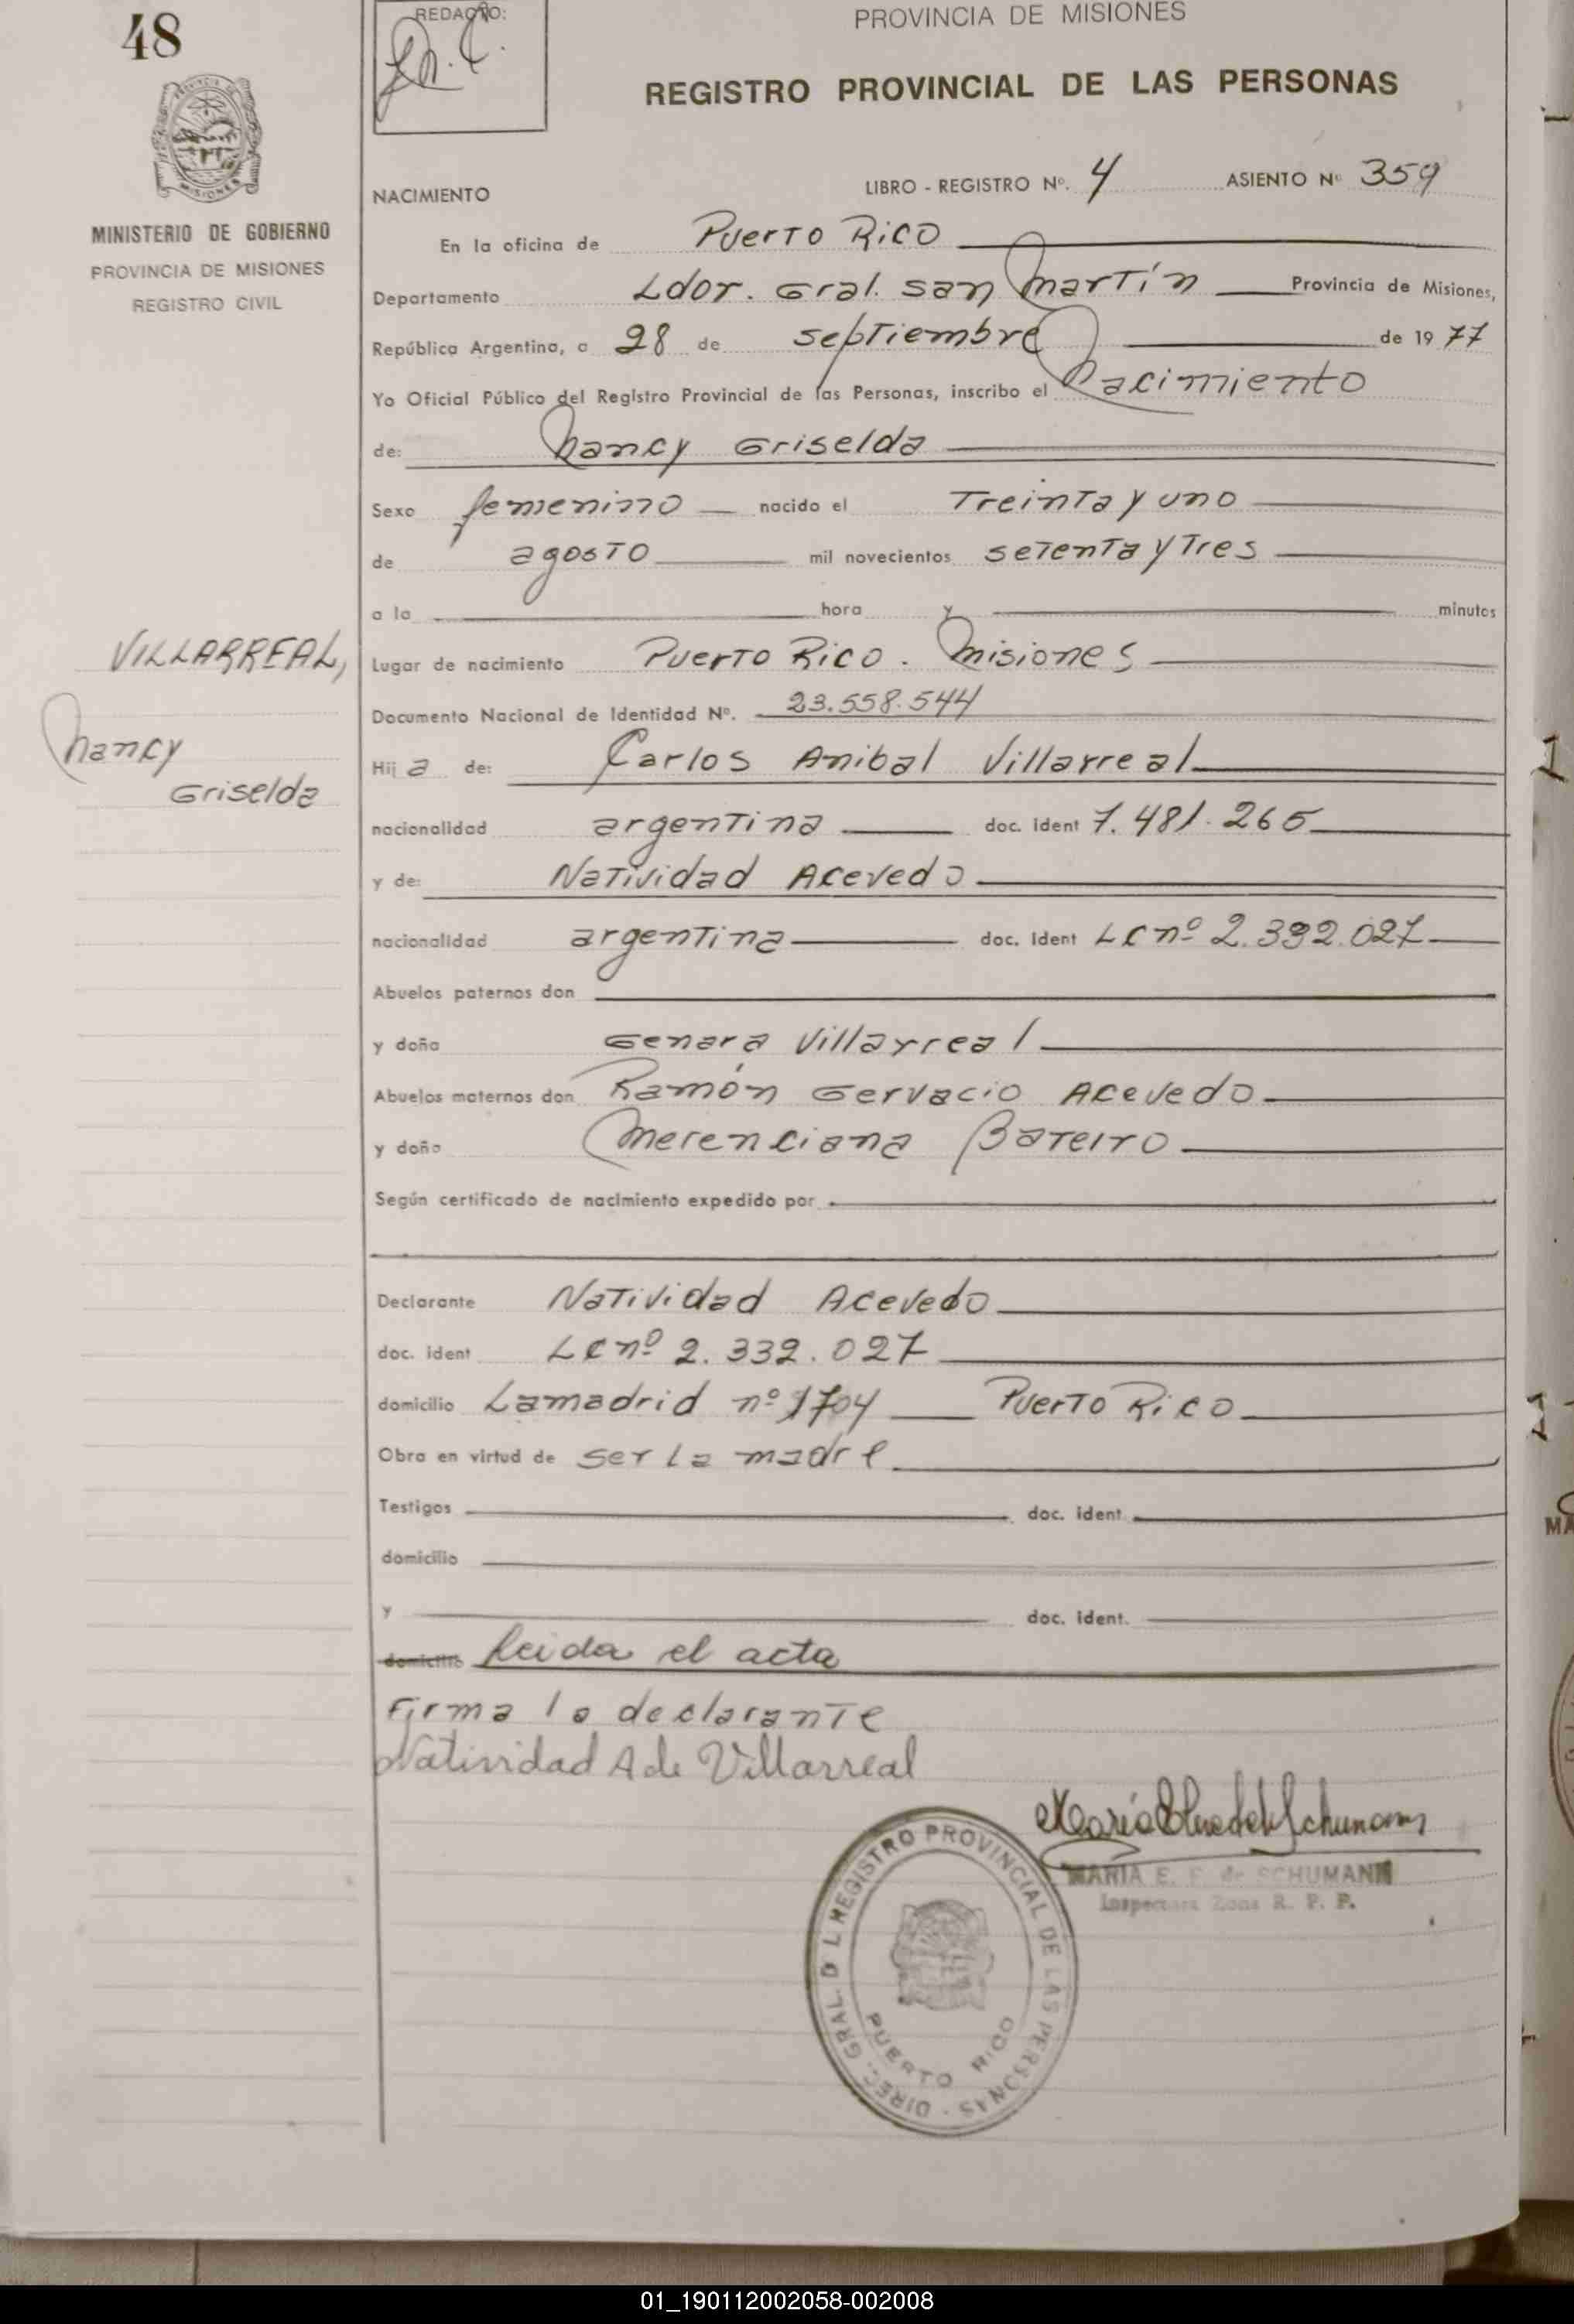 48
REDACTO:
PROVINCIA DE MISIONES
REGISTRO PROVINCIAL DE LAS PERSONAS
MISIONES
MINISTERIO DE GOBIERNO
PROVINCIA DE MISIONES
REGISTRO CIVIL
NACIMIENTO
LIBRO - REGISTRO Nº. 4 ASIENTO Nº 359
En la oficina de Puerto Rico
Departamento Ldor. Gral. San Martín Provincia de Misiones,
República Argentina, a 28 de septiembre de 1977
Yo Oficial Público del Registro Provincial de las Personas, inscribo el Nacimiento
de: Nancy Griselda
Sexo femenino nacido el Treinta y uno
de agosto mil novecientos setenta y Tres
a la hora y minutos
VILLARREAL,
Nancy
Griselda
Lugar de nacimiento Puerto Rico. Misiones
Documento Nacional de Identidad Nº. 23.558.544
Hij a de: Carlos Anibal Villarreal
nacionalidad argentina doc. ident 7.481.265
y de: Natividad Acevedo
nacionalidad argentina doc. ident LC nº 2.332.027
Abuelos paternos don
y doña Genara Villarreal
Abuelos maternos don Ramón Gervacio Acevedo
y doña Merenciana Bareiro
Según certificado de nacimiento expedido por
Declarante Natividad Acevedo
doc. ident LC nº 2.332.027
domicilio Lamadrid nº 1704 Puerto Rico
Obra en virtud de ser la madre
Testigos doc. ident.
domicilio
y doc. ident.
domicilio Leida el acta
Firma la declarante
Natividad A de Villarreal
MARIA E. F. de SCHUMANN
Inspectora Zona R. P. P.
DIREC. GRAL. D L REGISTRO PROVINCIAL DE LAS PERSONAS -
PUERTO RICO
MA
01_190112002058-002008